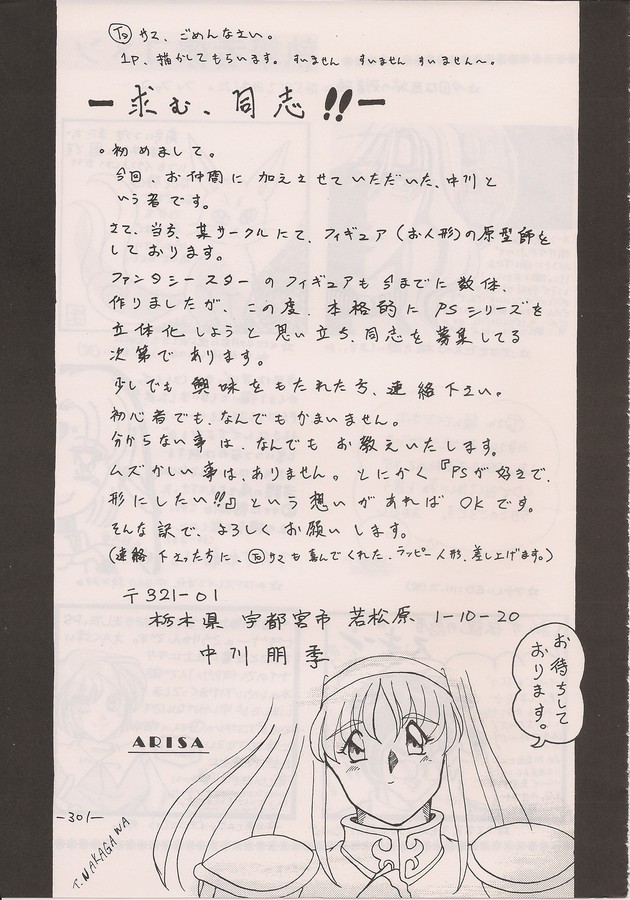 To サマ、ごめんなさい。
1P. 描かしてもらいます。すいません すいません すいません〜。
ー求む、同志!!ー
・初めまして。
今回、お仲間に加えさせていただいた、中川と
いう者です。
さて、当方、某サークルにて、フィギュア(お人形)の原型師を
しております。
ファンタシースターのフィギュアも今までに数体、
作りましたが、この度、本格的にPSシリーズを
立体化しようと思い立ち、同志を募集してる
次第であります。
少しでも興味をもたれた方、連絡下さい。
初心者でも、なんでもかまいません。
分からない事は、なんでもお教えいたします。
ムズかしい事は、ありません。とにかく『PSが好きで、
形にしたい!!』という想いがあれば OKです。
そんな訳で、よろしくお願いします。
(連絡下さった方に、To サマも喜んでくれた、ラッピー人形、差し上げます。)
〒321-01
栃木県 宇都宮市 若松原 1-10-20
中川朋季
お待ちして
おります。
ARISA
-301-
T. NAKAGAWA